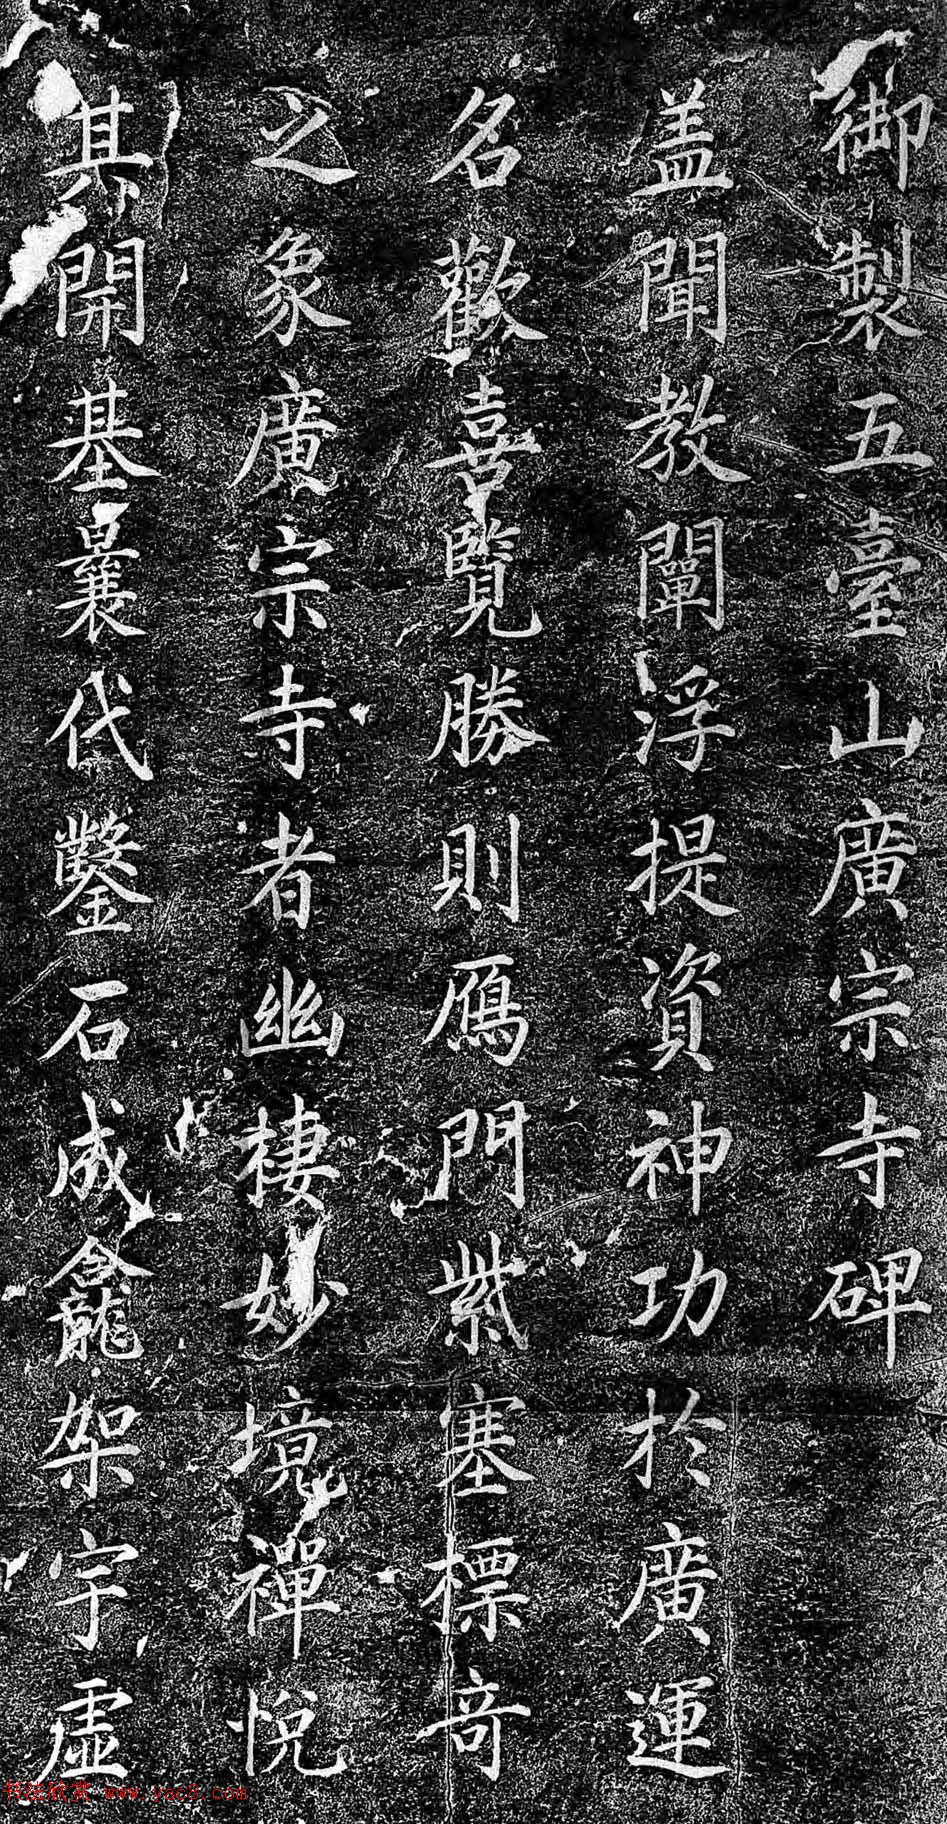 御製五臺山廣宗寺碑
盖聞教闡浮提資神功於廣運
名歡喜覽勝則鴈門紫塞標竒
之象廣宗寺者幽棲妙境禪悅
其開基曩代鑿石成龕架宇虛
书法欣赏 www.yac8.com